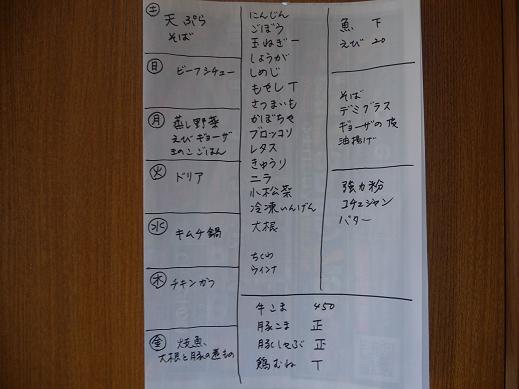 土
天ぷら
そば
日
ビーフシチュー
月
蒸し野菜
えびギョーザ
きのこごはん
火
ドリア
水
キムチ鍋
木
チキンカツ
金
焼魚、
大根と豚の煮もの
にんじん
ごぼう
玉ねぎ 一
しょうが
しめじ
もやし T
さつまいも
かぼちゃ
ブロッコリ
レタス
きゅうり
ニラ
小松菜
冷凍いんげん
大根
ちくわ
ウインナ
魚 下
えび 20
そば
デミグラス
ギョーザの皮
油揚げ
強力粉
コチュジャン
バター
牛こま 450
豚こま 正
豚しゃぶ 正
鶏むね T